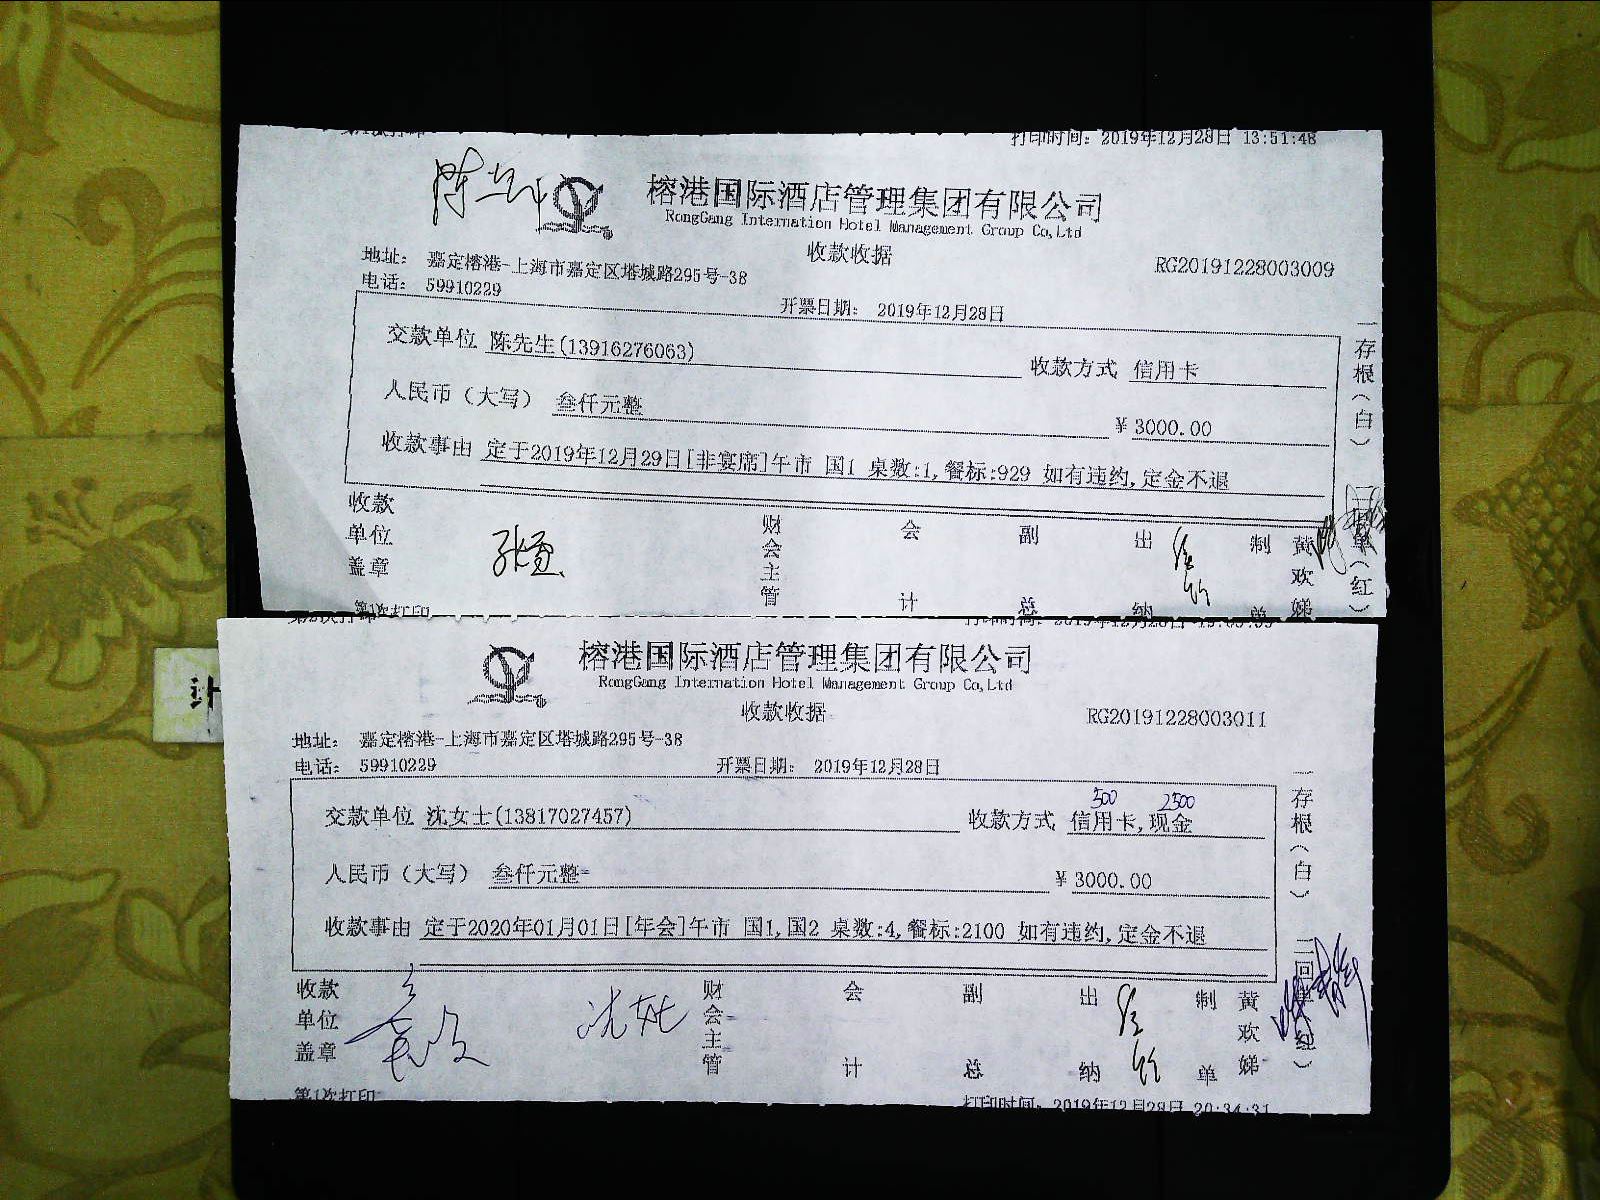 打印时间： 2019年12月28日 13:51:48
榕港国际酒店管理集团有限公司
RongGang Internation Hotel Management Group Co,Ltd
收款收据
RG20191228003009
地址： 嘉定榕港-上海市嘉定区塔城路295号-38
电话： 59910229
开票日期： 2019年12月28日
交款单位 陈先生(13916276063)
收款方式 信用卡
人民币（大写） 叁仟元整
¥ 3000.00
收款事由 定于2019年12月29日[非宴席]午市 国1 桌数:1,餐标:929 如有违约,定金不退
一存根（白）
收款单位盖章
财会主管
会计
副总
出纳
制单
黄欢娣
（红）
第1次打印
榕港国际酒店管理集团有限公司
RongGang Internation Hotel Management Group Co,Ltd
收款收据
RG20191228003011
地址： 嘉定榕港-上海市嘉定区塔城路295号-38
电话： 59910229
开票日期： 2019年12月28日
500 2500
交款单位 沈女士(13817027457)
收款方式 信用卡,现金
人民币（大写） 叁仟元整
¥ 3000.00
收款事由 定于2020年01月01日[年会]午市 国1,国2 桌数:4,餐标:2100 如有违约,定金不退
一存根（白）
二回单（红）
收款单位盖章
财会主管
会计
副总
出纳
制单
黄欢娣
第1次打印
打印时间： 2019年12月28日 20:34:31
计